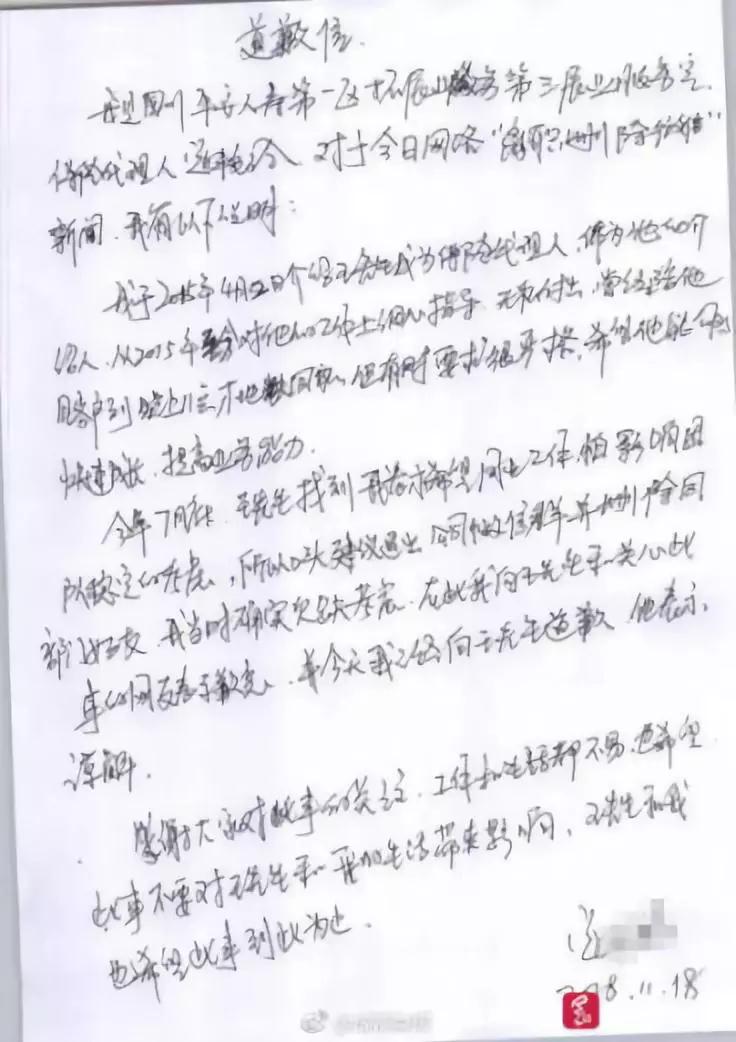 道歉信.
我是四川平安人寿第一区 展业服务第三展业服务室
保险代理人 对于今日网络“离职 删除微信”
新闻,我有以下说明:
我于2015年4月 日介绍王先生成为保险代理人,作为他的介
绍人,从2015年 对他的工作上细心指导,无私付出,曾经陪他
见客户到晚上 才 回家。但有时要求很严格,希望他能
快速成长,提高业务能力.
今年7月 ,王先生找到我表示希望 工作,怕影响团
队稳定的考虑,所以口头建议退出公司微信群并删除同
部门好友,我当时确实欠缺考虑。在此我向王先生和关心此
事的网友表示歉意。 今天我已经向王先生道歉,他表示
谅解.
感谢大家对此事的关注,工作和生活都不易,也希望
此事不要对王先生和我的生活带来影响,王先生和我
也希望此事到此为止.
2018.11.18